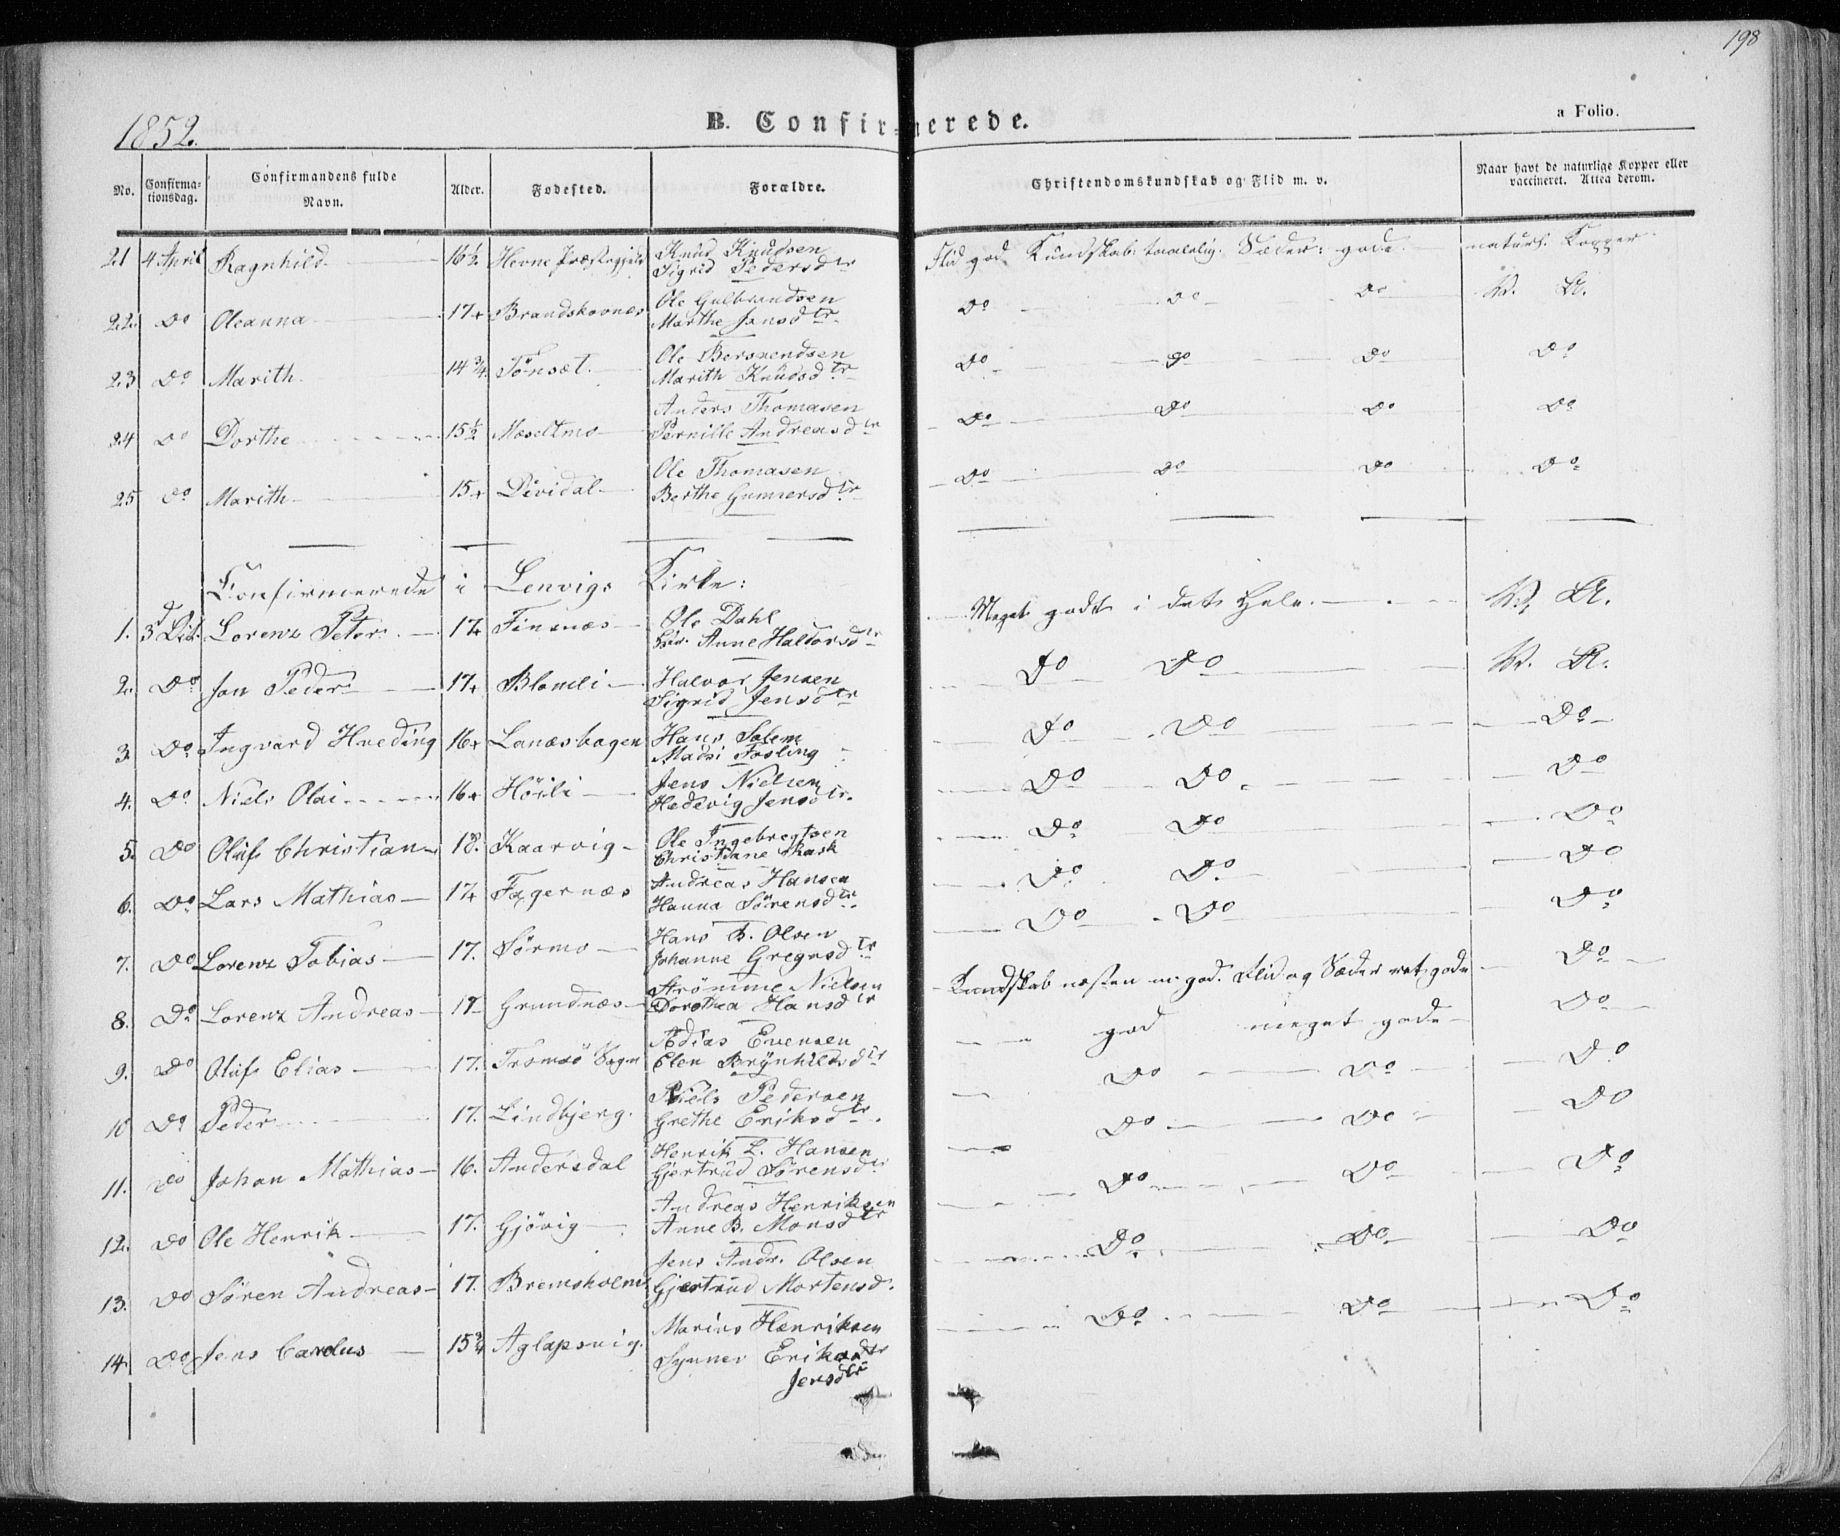 198
1852.
B. Confirmerede.
a Folio.
No. Confirmationsdag. Confirmandens fulde Navn. Alder. Fødested. Forældre. Christendomskundskab og Flid m. v. Naar havt de naturlige Kopper eller vaccineret. Attea derom.
21 4 April Ragnhild 16½ Hevne Præstegjeld Knud Knudsen Sigrid Pedersdtr Flid god Kundskab: taalelig. Sæder: gode. naturl. Kopper
22. Do Oleanna 17 Brandskovnæs Ole Gulbrandsen Marthe Jonsdtr. Do Do Do V. A.
23 Do Marith 14¾ Tönset. Ole Bersvendsen Marith Knudsdtr Do Do Do Do
24 Do Dorthe 15½ Moseltmo Anders Thomasen Pernille Andreasdtr Do Do Do Do
25 Do Marith 15 Dividal Ole Thomasen Berthe Gunnersdtr Do Do Do Do
Confirmerede i Lenvigs Kirke:
1. 3d Oct. Lorenz Peter 17 Finsnæs Ole Dahl Anne Haldorsdtr Meget godt i det Hele. V. A.
2. Do Jon Peder 17 Blomli Halvor Jensen Sigrid Jensdtr Do Do V. A.
3. Do Ingvard Hveding 16 Lanæsbogen Hans Solem Madsi Fosling Do Do Do
4. Do Niels Olai 16 Höili Jens Nielsen Hedevig Jensdtr. Do Do Do
5. Do Oluf Christian 18. Kaarvig Ole Ingebregtsen Christiane Rask Do Do Do
6. Do Lars Mathias 17 Fagernæs Andreas Hansen Hanna Sörensdtr. Do Do Do
7. Do Lorenz Tobias 17. Sörmo Hans B. Olsen Johanne Gregersdtr Do Do Do
8. Do Lorenz Andreas 17 Grundnæs Strömme Nielsen Dorothea Hansdtr Kundskab næsten m: god. Flid og Sæder ret gode Do
9. Do Oluf Elias 17. Tromsö Sogn Adias Evensen Elen Brynhildsdtr god meget gode Do
10 Do Peder 17. Lindbjerg. Niels Pedersen Grethe Eriksdtr. Do Do Do
11. Do Johan Mathias 16. Andersdal Henrik L. Hansen Gjertrud Sörensdtr Do Do Do
12. Do Ole Henrik 17. Gjövig Andreas Henriksen Anne B. Monsdtr Do Do Do
13. Do Sören Andreas 17. Bremsholm Jens Andr. Olsen Gjertrud Mortensd. Do Do Do
14 Do Jens Carelus 15¾ Aglapsvig. Marius Henriksen Synnev Eriksdtr Do Do Do
Jensdtr